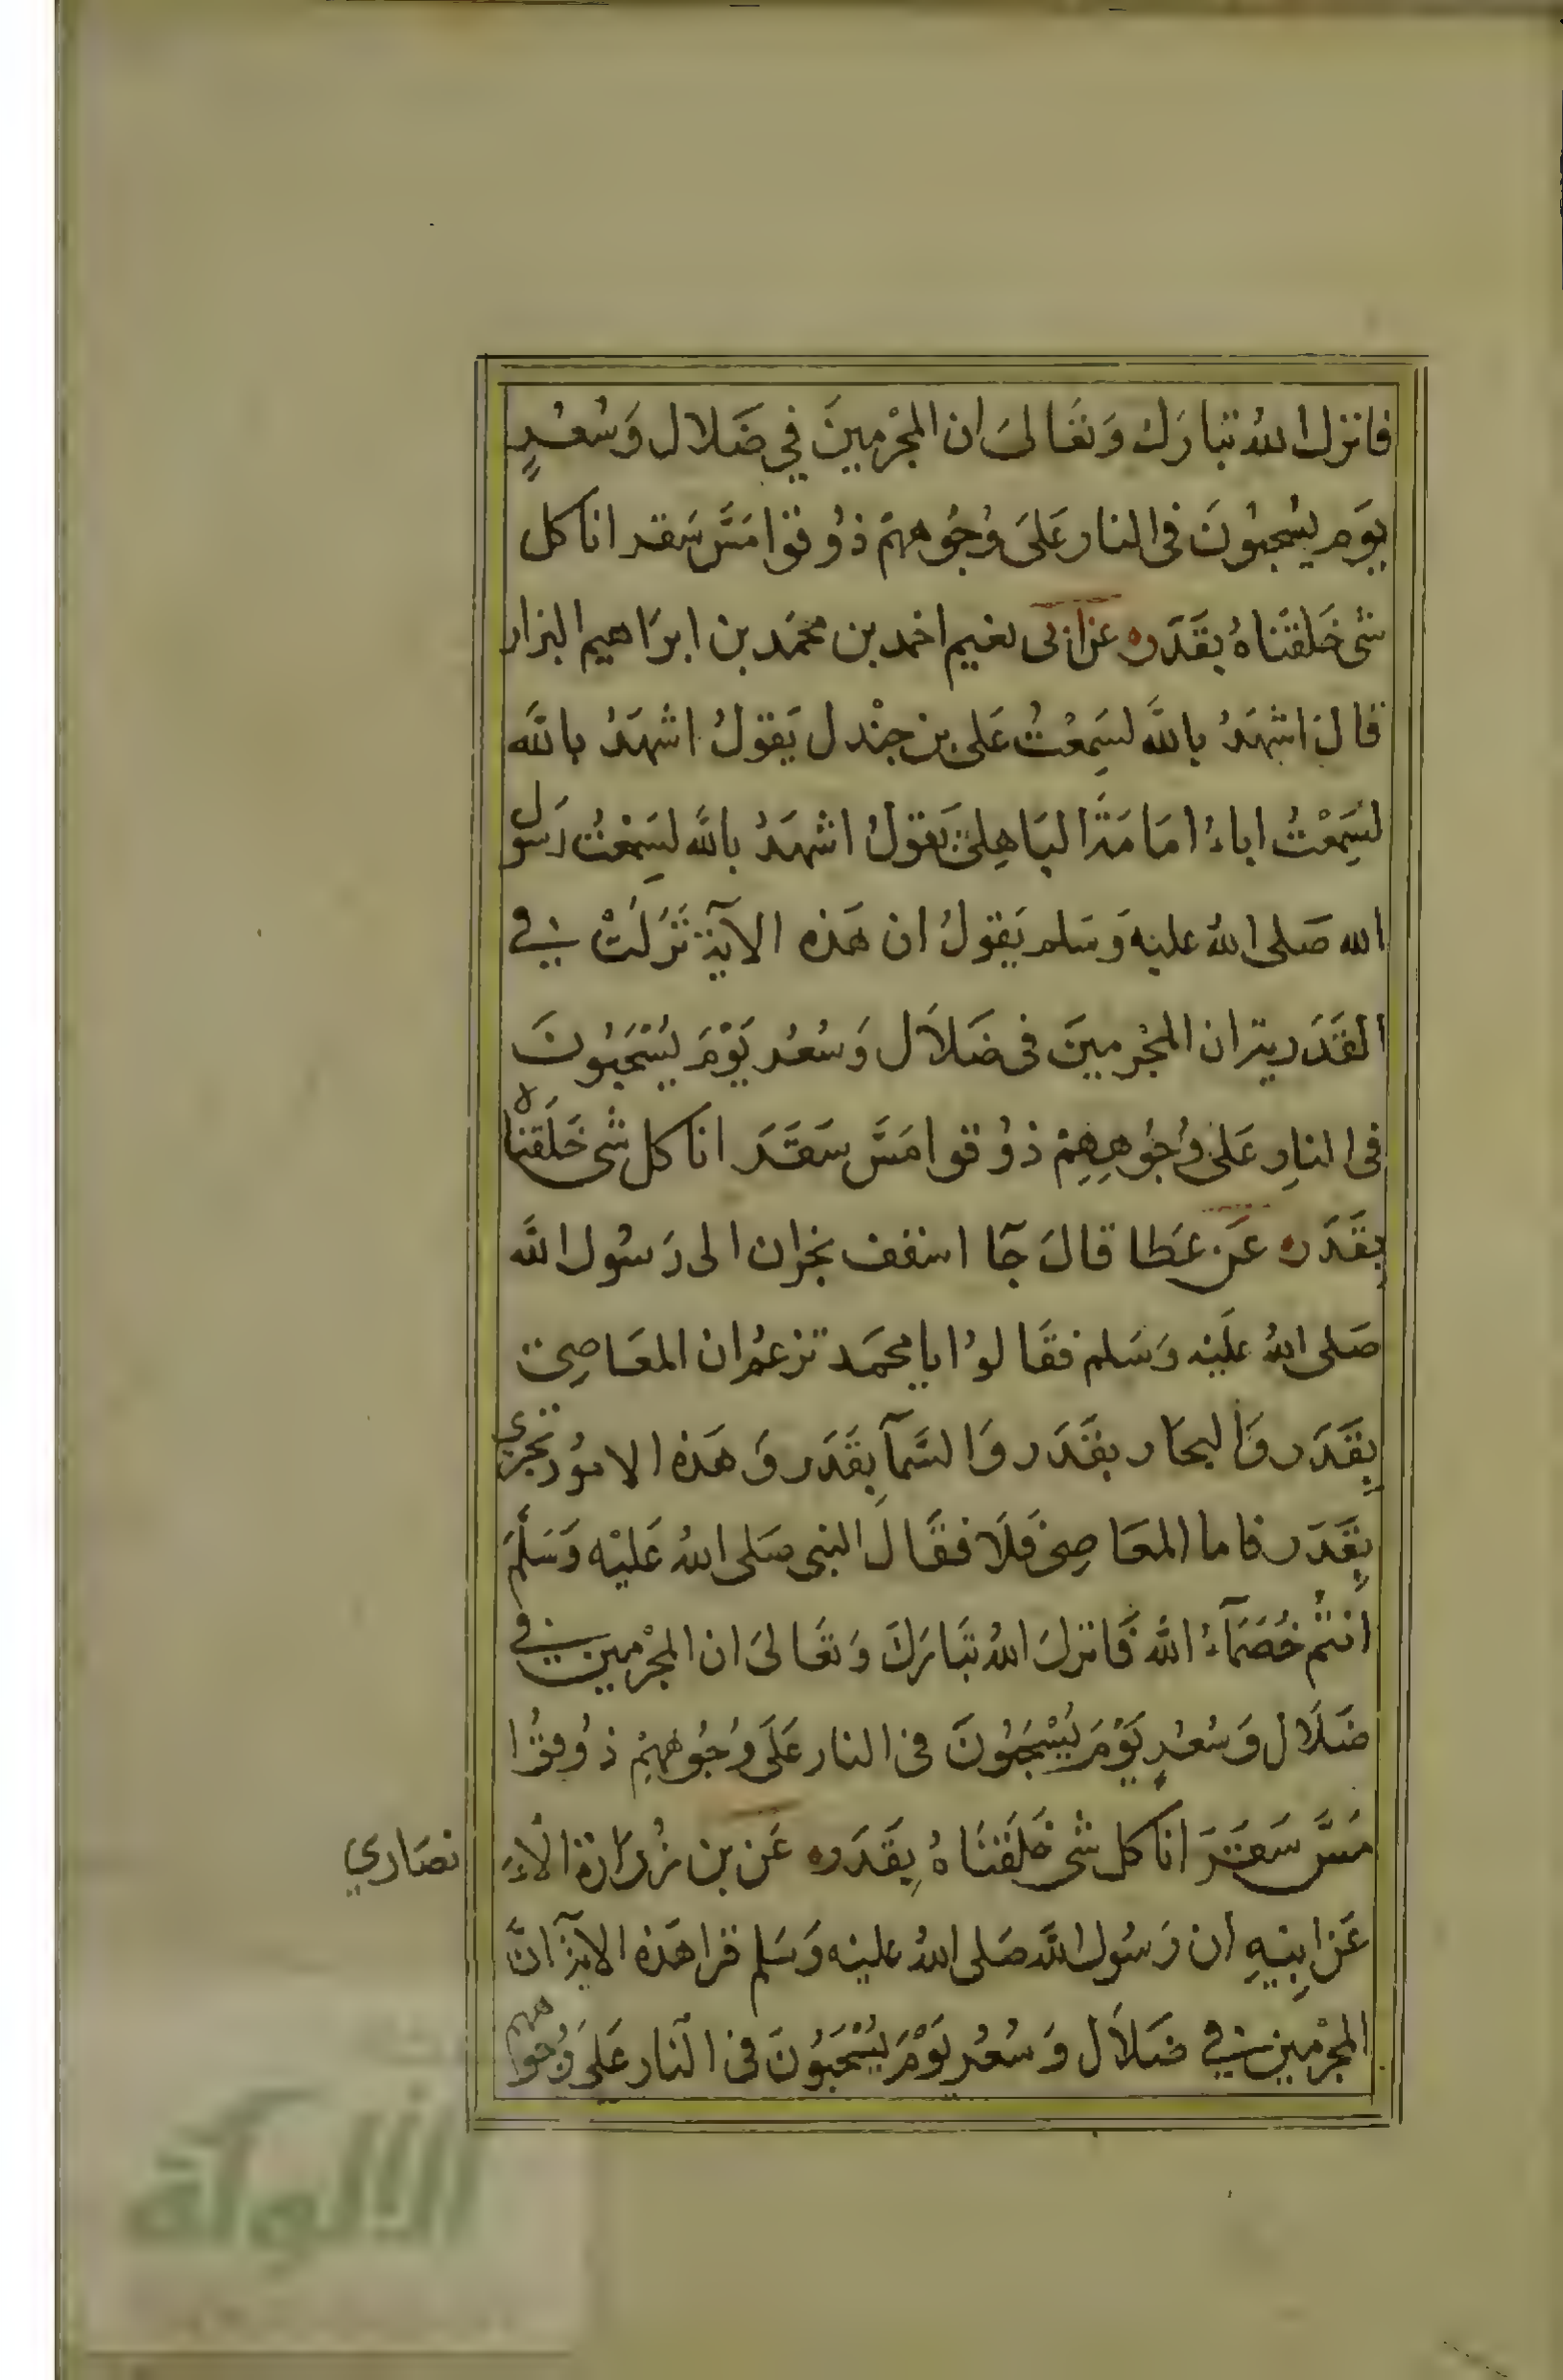 فانزل اللهُ تبارَكَ وَتعَالىَ ان المجْرمينَ في ضَلال وَسُعُرٍ
يوَم يسُحبُونَ فى النار عَلىَ وُجُوههمْ ذوُقوا مَسَّ سَقر انا كل
شى خَلقنَاهُ بقَدَر ه عن ابى نعيم احمد بن محمَد بن ابرَاهيم البزار
قال اشهَدُ باللَّه لسَمِعْتُ عَلى بن جنْدل يَقولُ اشهَدُ باللَّه
لسَمِعْتُ اباءُ امَامَةَ البَاهِلىّ يَقولُ اشهَدُ باللَّه لسَمِعْتُ رَسول
الله صَلى اللهُ عليْه وَسَلم يَقولُ ان هَذه الآية نَزلَتْ في
القَدَرية ان المجْرمينَ فى ضَلاَل وَسُعُر يَوْمَ يُسْحَبُونَ
فى النارِ عَلى وُجُوهِهِمْ ذوُقوا مَسَّ سَقَرَ انا كل شى خَلَقنْاه
بقَدَر ه عَن عَطا قالَ جَآ اسقف نجران الى رَسُول اللَّه
صَلى اللهُ عَلَيْه وَسَلم فقَالوُا يا محمَد تزعمُ ان المعَاصِيَ
بِقَدَر وَالبحَار بقَدَر وَالسَّمآ بِقَدَر وَهَذه الامُور تجري
بِقَدَر فاما المعَاصِى فَلَا فقَالَ النبى صَلى اللهُ عَليْه وَسَلَّمَ
انتُم خُصَمَآءُ اللَّه فَانزلَ اللهُ تَبَارَكَ وَتعَالىَ ان المجْرمين في
ضَلَال وَسُعُرٍ يَوْمَ يُسْحَبُونَ فى النار عَلَى وُجُوههِمْ ذوُقوُا
مَسَّ سَقَرَ انا كل شى خَلَقنَاهُ بِقَدَر ه عَن بن زُرَارة الاء نصَاري
عَن ابِيهِ ان رَسُول اللَّه صَلى اللهُ عليْه وَسَلم قرا هَذه الآية انَّ
المجْرمين في ضَلاَل وَسُعُر يَوْمَ يُسْحَبُونَ فى النَّار عَلَى وُجُوههم
الألوكة